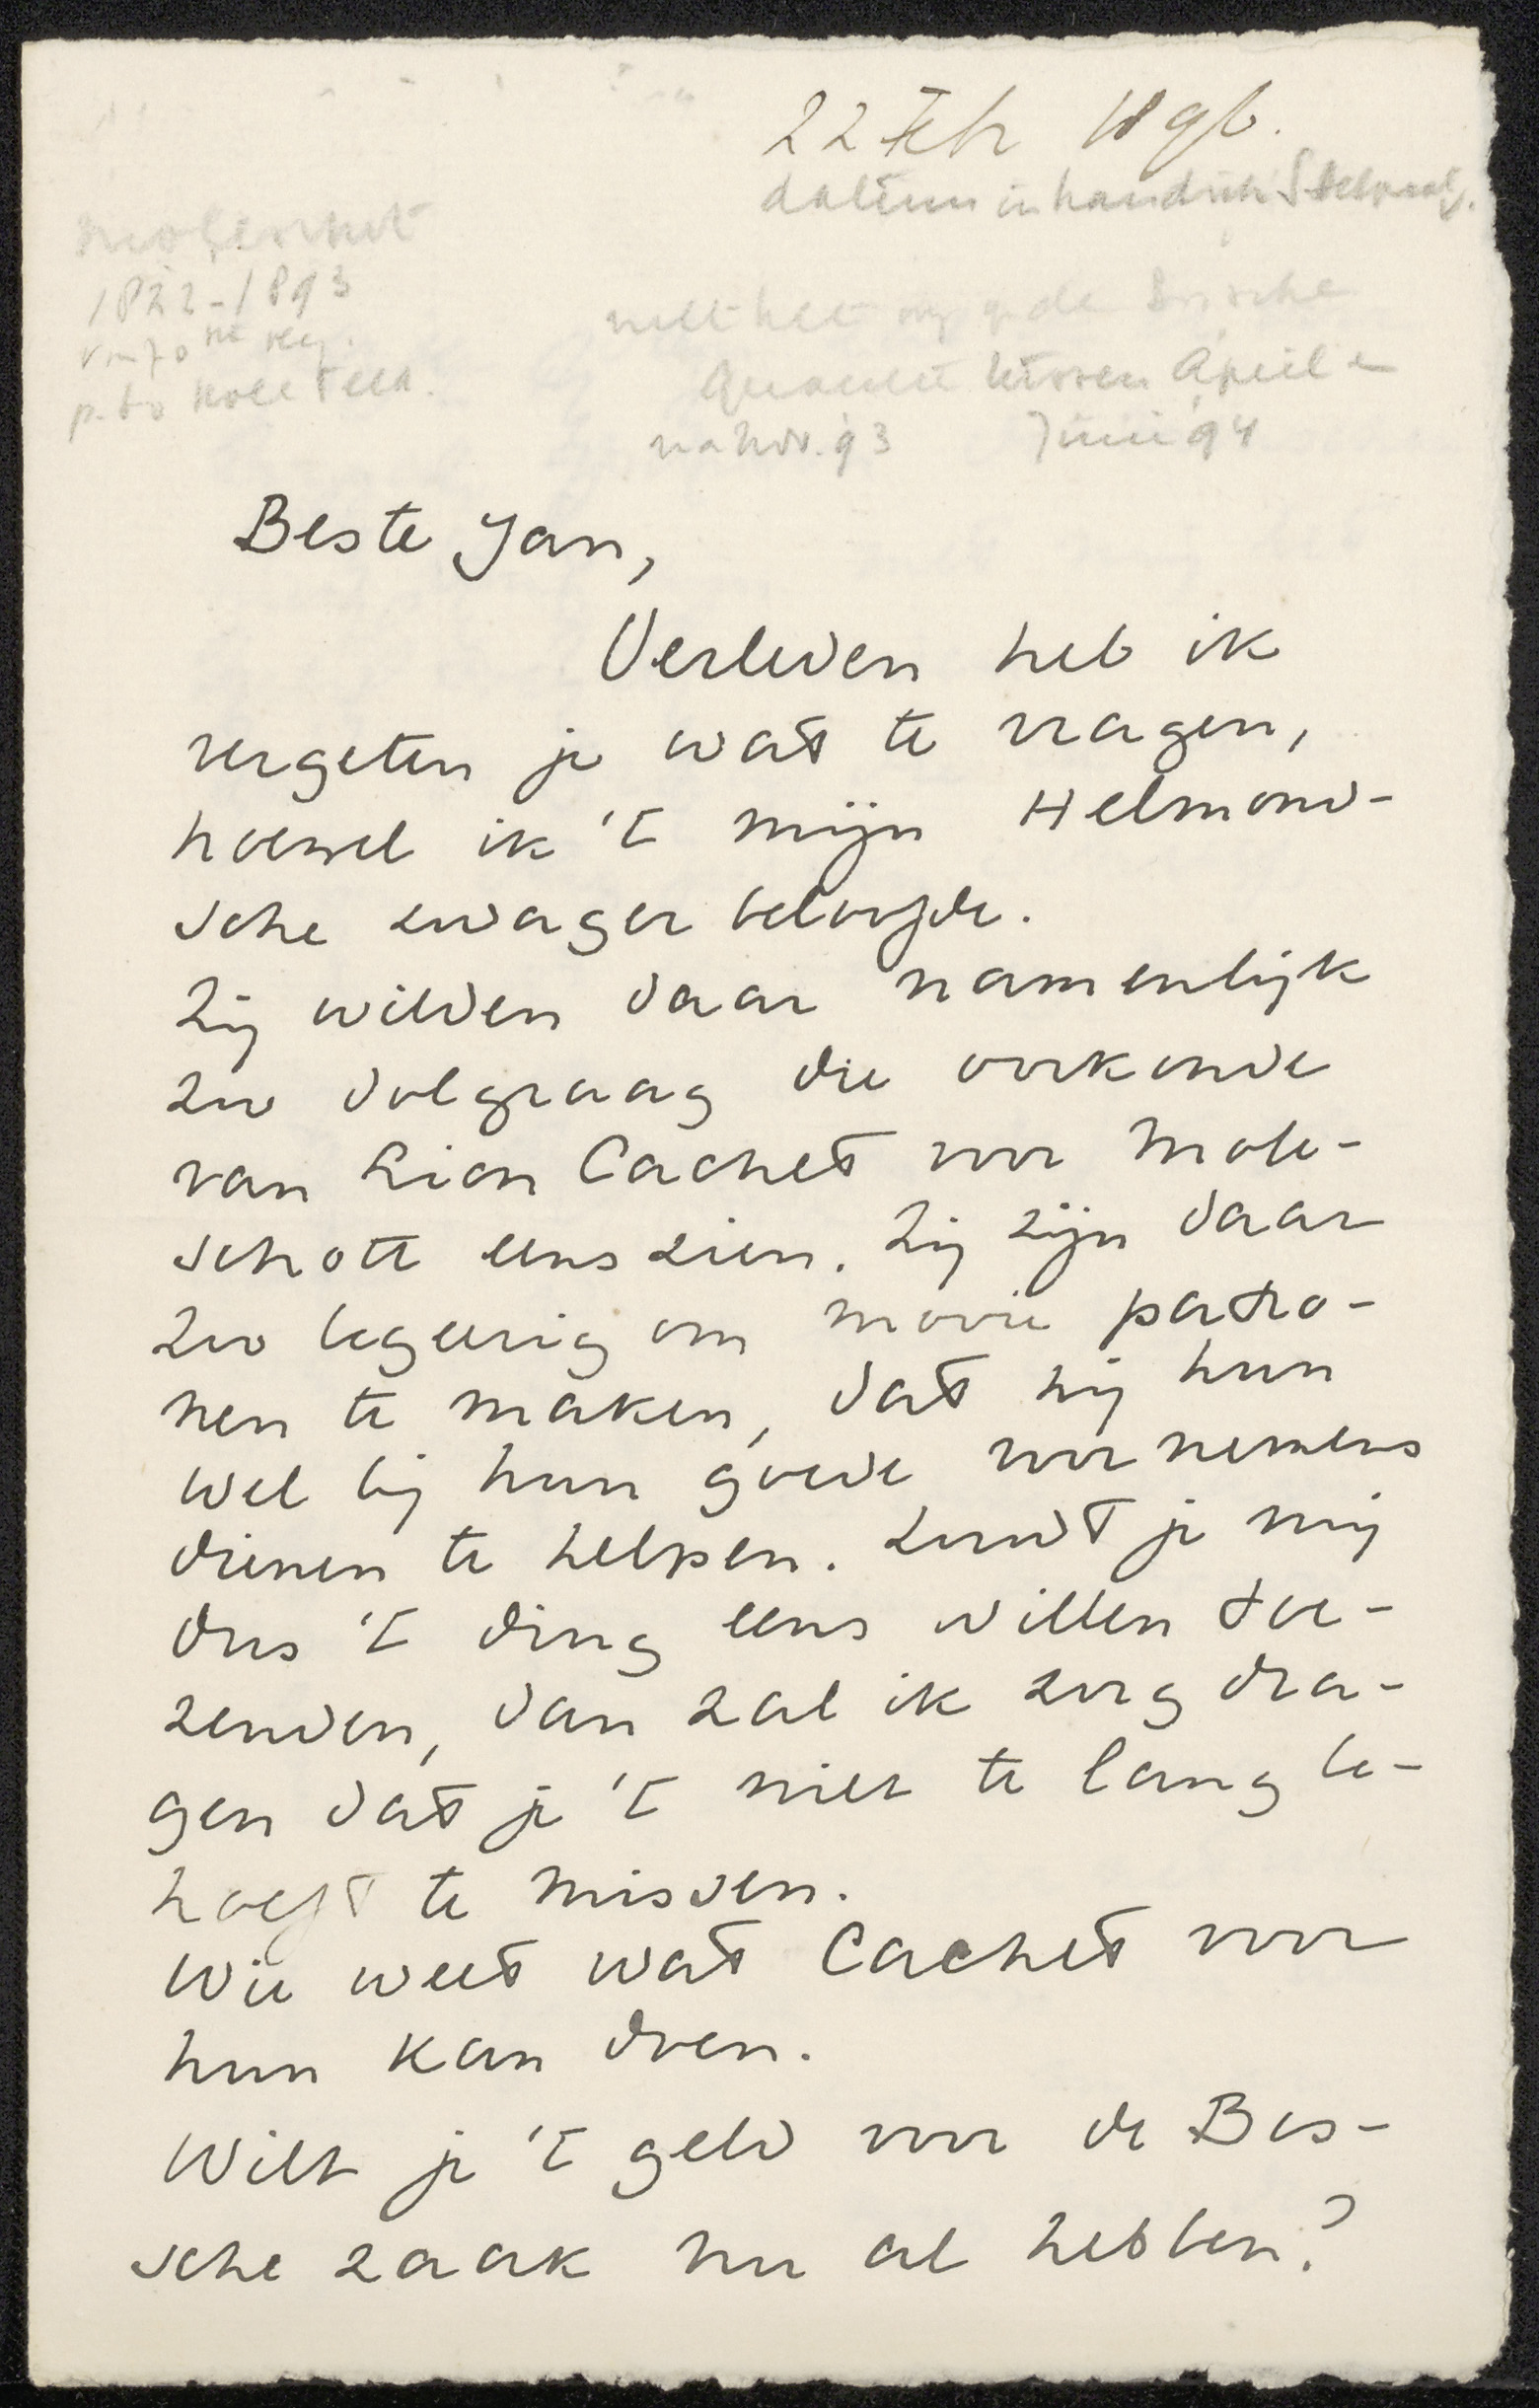 22 Feb 1896.
datum in handschr
Moleschott
1822-1893
70 ste
p.
na Nov. 93 Juni 94
tussen April en
Beste Jan,
Verleden heb ik
vergeten je wat te vragen,
hoewel ik 't mijn Helmond-
sche zwager beloofde.
Zij wilden daar namenlijk
zoo dolgraag die oorkonde
van Lion Cachet voor Mole-
schott eens zien. Zij zijn daar
zoo begeerig om mooie patro-
nen te maken, dat wij hun
wel bij hun goede voornemens
dienen te helpen. Zoudt je mij
dus 't ding eens willen toe-
zenden, dan zal ik zorg dra-
gen dat je 't niet te lang be-
hoeft te missen.
Wie weet wat Cachet voor
hun kan doen.
Wilt je 't geld voor de Bos-
sche zaak nu al hebben?